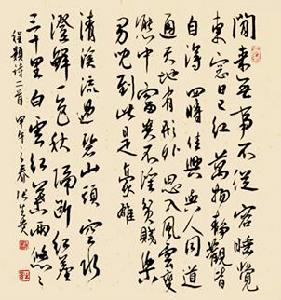 閒来无事不從容睡覺
東窗日已红萬物静觀皆
自得四時佳興與人同道
通天地有形外思入風雲變
態中富貴不淫貧賤樂
男兒到此是豪雄
清溪流過碧山頭空水
澄鮮一色秋隔斷红塵
三十里白雲红葉兩悠〻
程顥詩二首 甲午之春